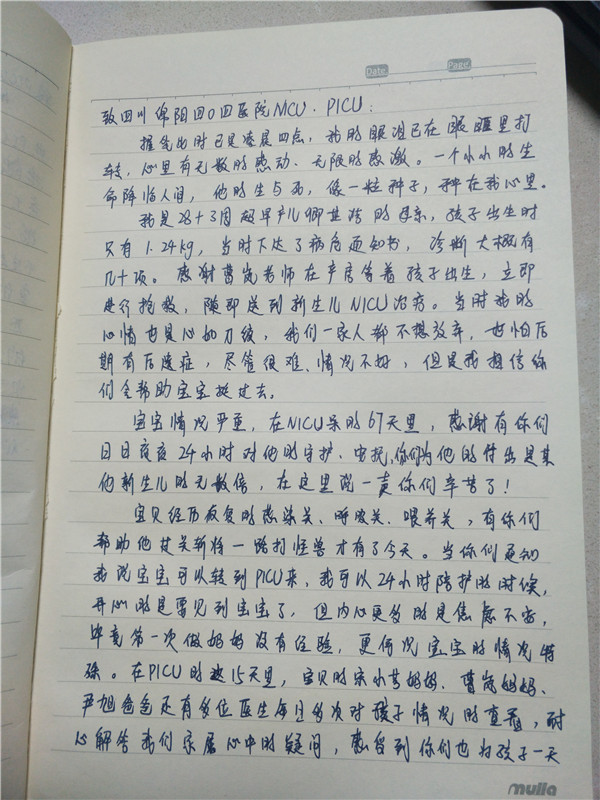 Date Page
致四川绵阳四0四医院NICU、PICU：
提笔此时已是凌晨四点，我的眼泪已在眼眶里打
转，心里有无数的感动、无限的感激。一个小小的生
命降临人间，他的生与否，像一粒种子，种在我心里。
我是28+3周超早产儿卿其 的母亲，孩子出生时
只有1.24kg，当时下达了病危通知书，诊断大概有
几十项。感谢曹岚老师在产房等着孩子出生，立即
进行抢救，随即送到新生儿NICU治疗。当时我的
心情也是心如刀绞，我们一家人都不想放弃，也怕后
期有后遗症，尽管很难、情况不好，但是我相信你
们会帮助宝宝挺过去。
宝宝情况严重，在NICU呆的67天里，感谢有你们
日日夜夜24小时对他的守护、安抚，你们为他的付出是其
他新生儿的无数倍，在这里说一声你们辛苦了！
宝贝经历反复的感染关、呼吸关、喂养关，有你们
帮助他过关斩将一路打怪兽才有了今天。当你们通知
我说宝宝可以转到PICU来，我可以24小时陪护的时候，
开心的是要见到宝宝了，但内心更多的是焦虑不安，
毕竟第一次做妈妈没有经验，更何况宝宝的情况特
殊。在PICU的这15天里，宝贝的宋小芳妈妈、曹岚妈妈、
尹旭爸爸还有多位医生每日多次对孩子情况的查看，耐
心解答我们家属心中的疑问，感受到你们也为孩子一天
mulla